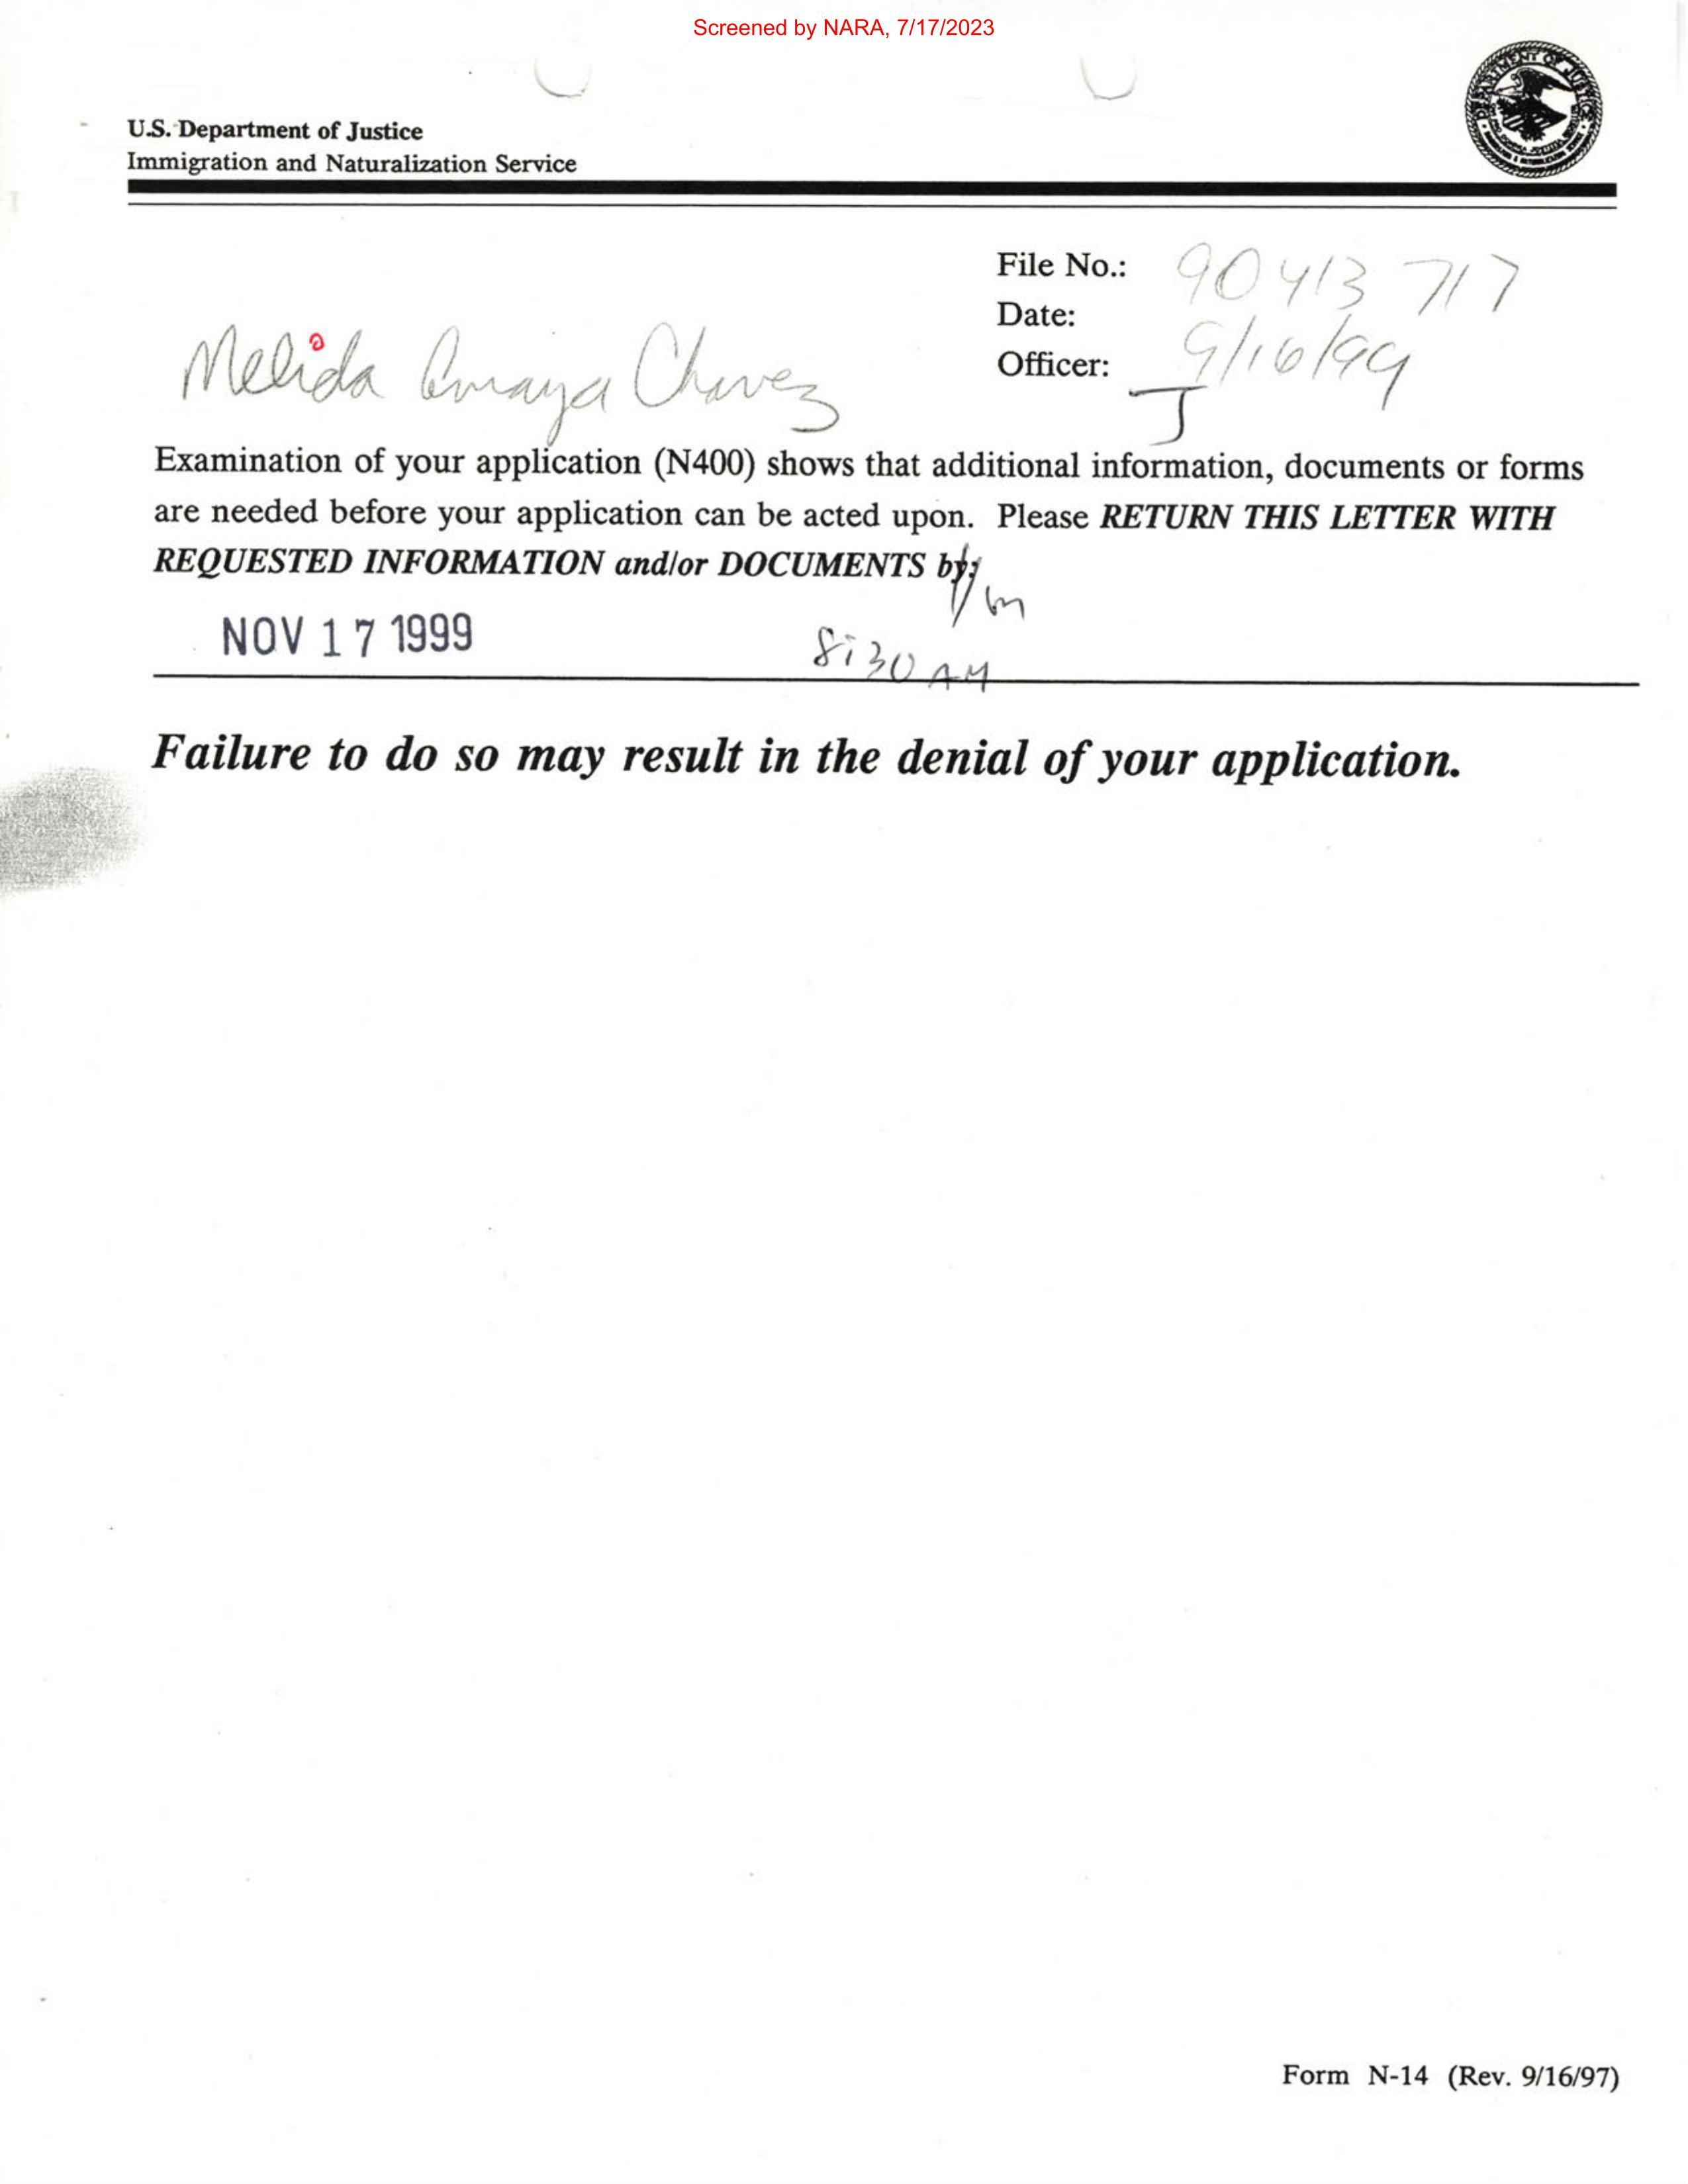 Screened by NARA, 7/17/2023
U.S. Department of Justice
Immigration and Naturalization Service
File No.: 90 413 717
Date: 9/16/99
Officer: J
Melida Amaya Chavez
Examination of your application (N400) shows that additional information, documents or forms
are needed before your application can be acted upon. Please RETURN THIS LETTER WITH
REQUESTED INFORMATION and/or DOCUMENTS by:
on
NOV 17 1999 8:30 AM
Failure to do so may result in the denial of your application.
Form N-14 (Rev. 9/16/97)